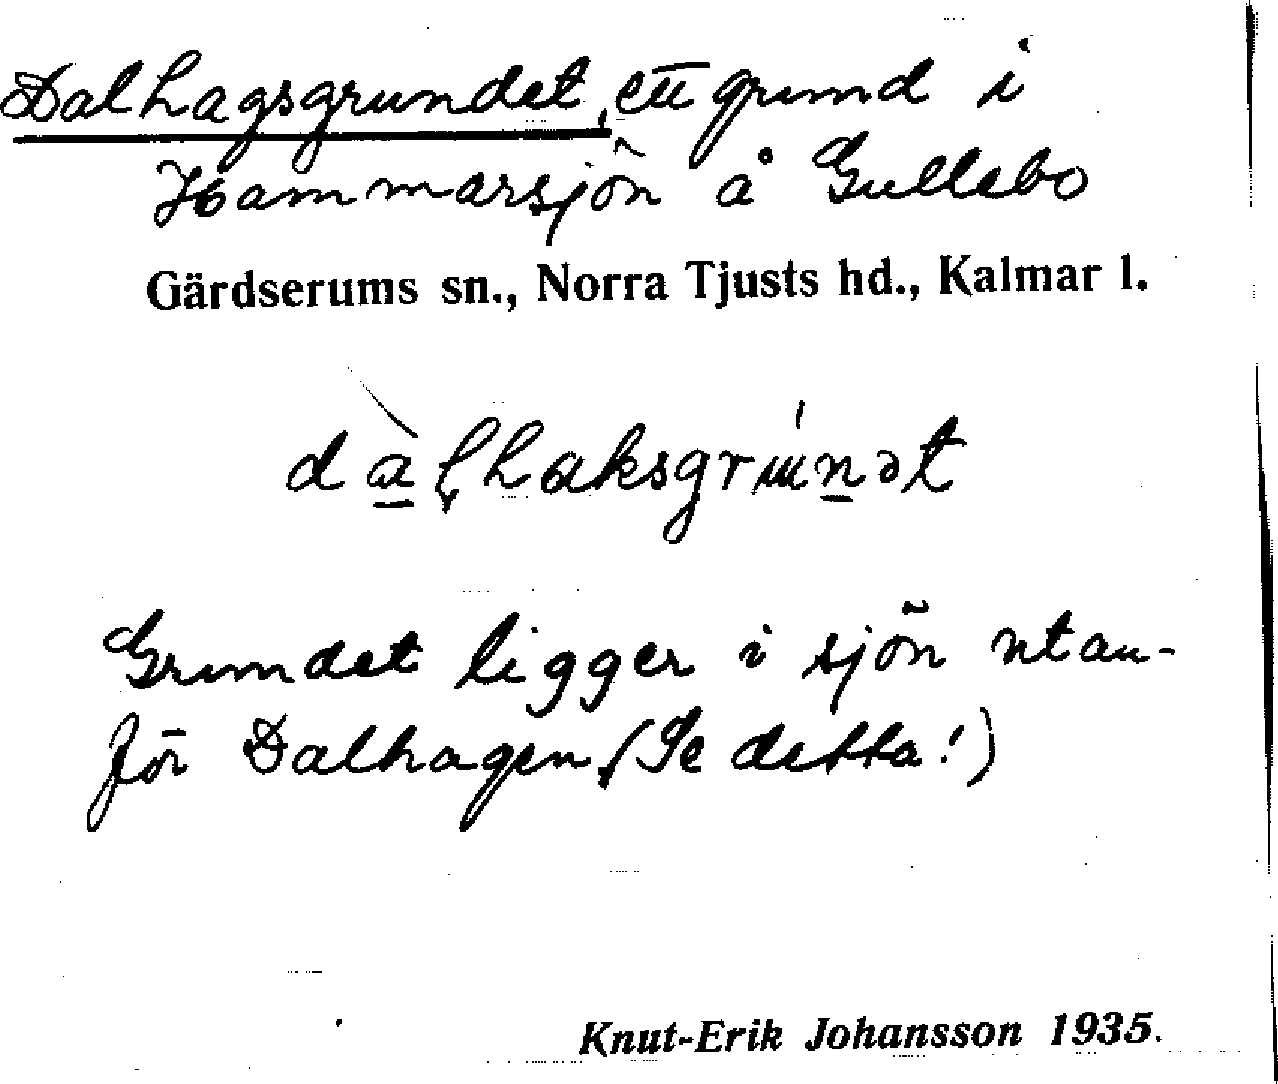 Dalhagsgrundet, ett grund i
Hammarsjön å Gullebo
Gärdserums sn., Norra Tjusts hd., Kalmar l.
dàļhaksgrúnət
Grundet ligger i sjön utan-
för Dalhagen, (Se detta!)
Knut-Erik Johansson 1935.